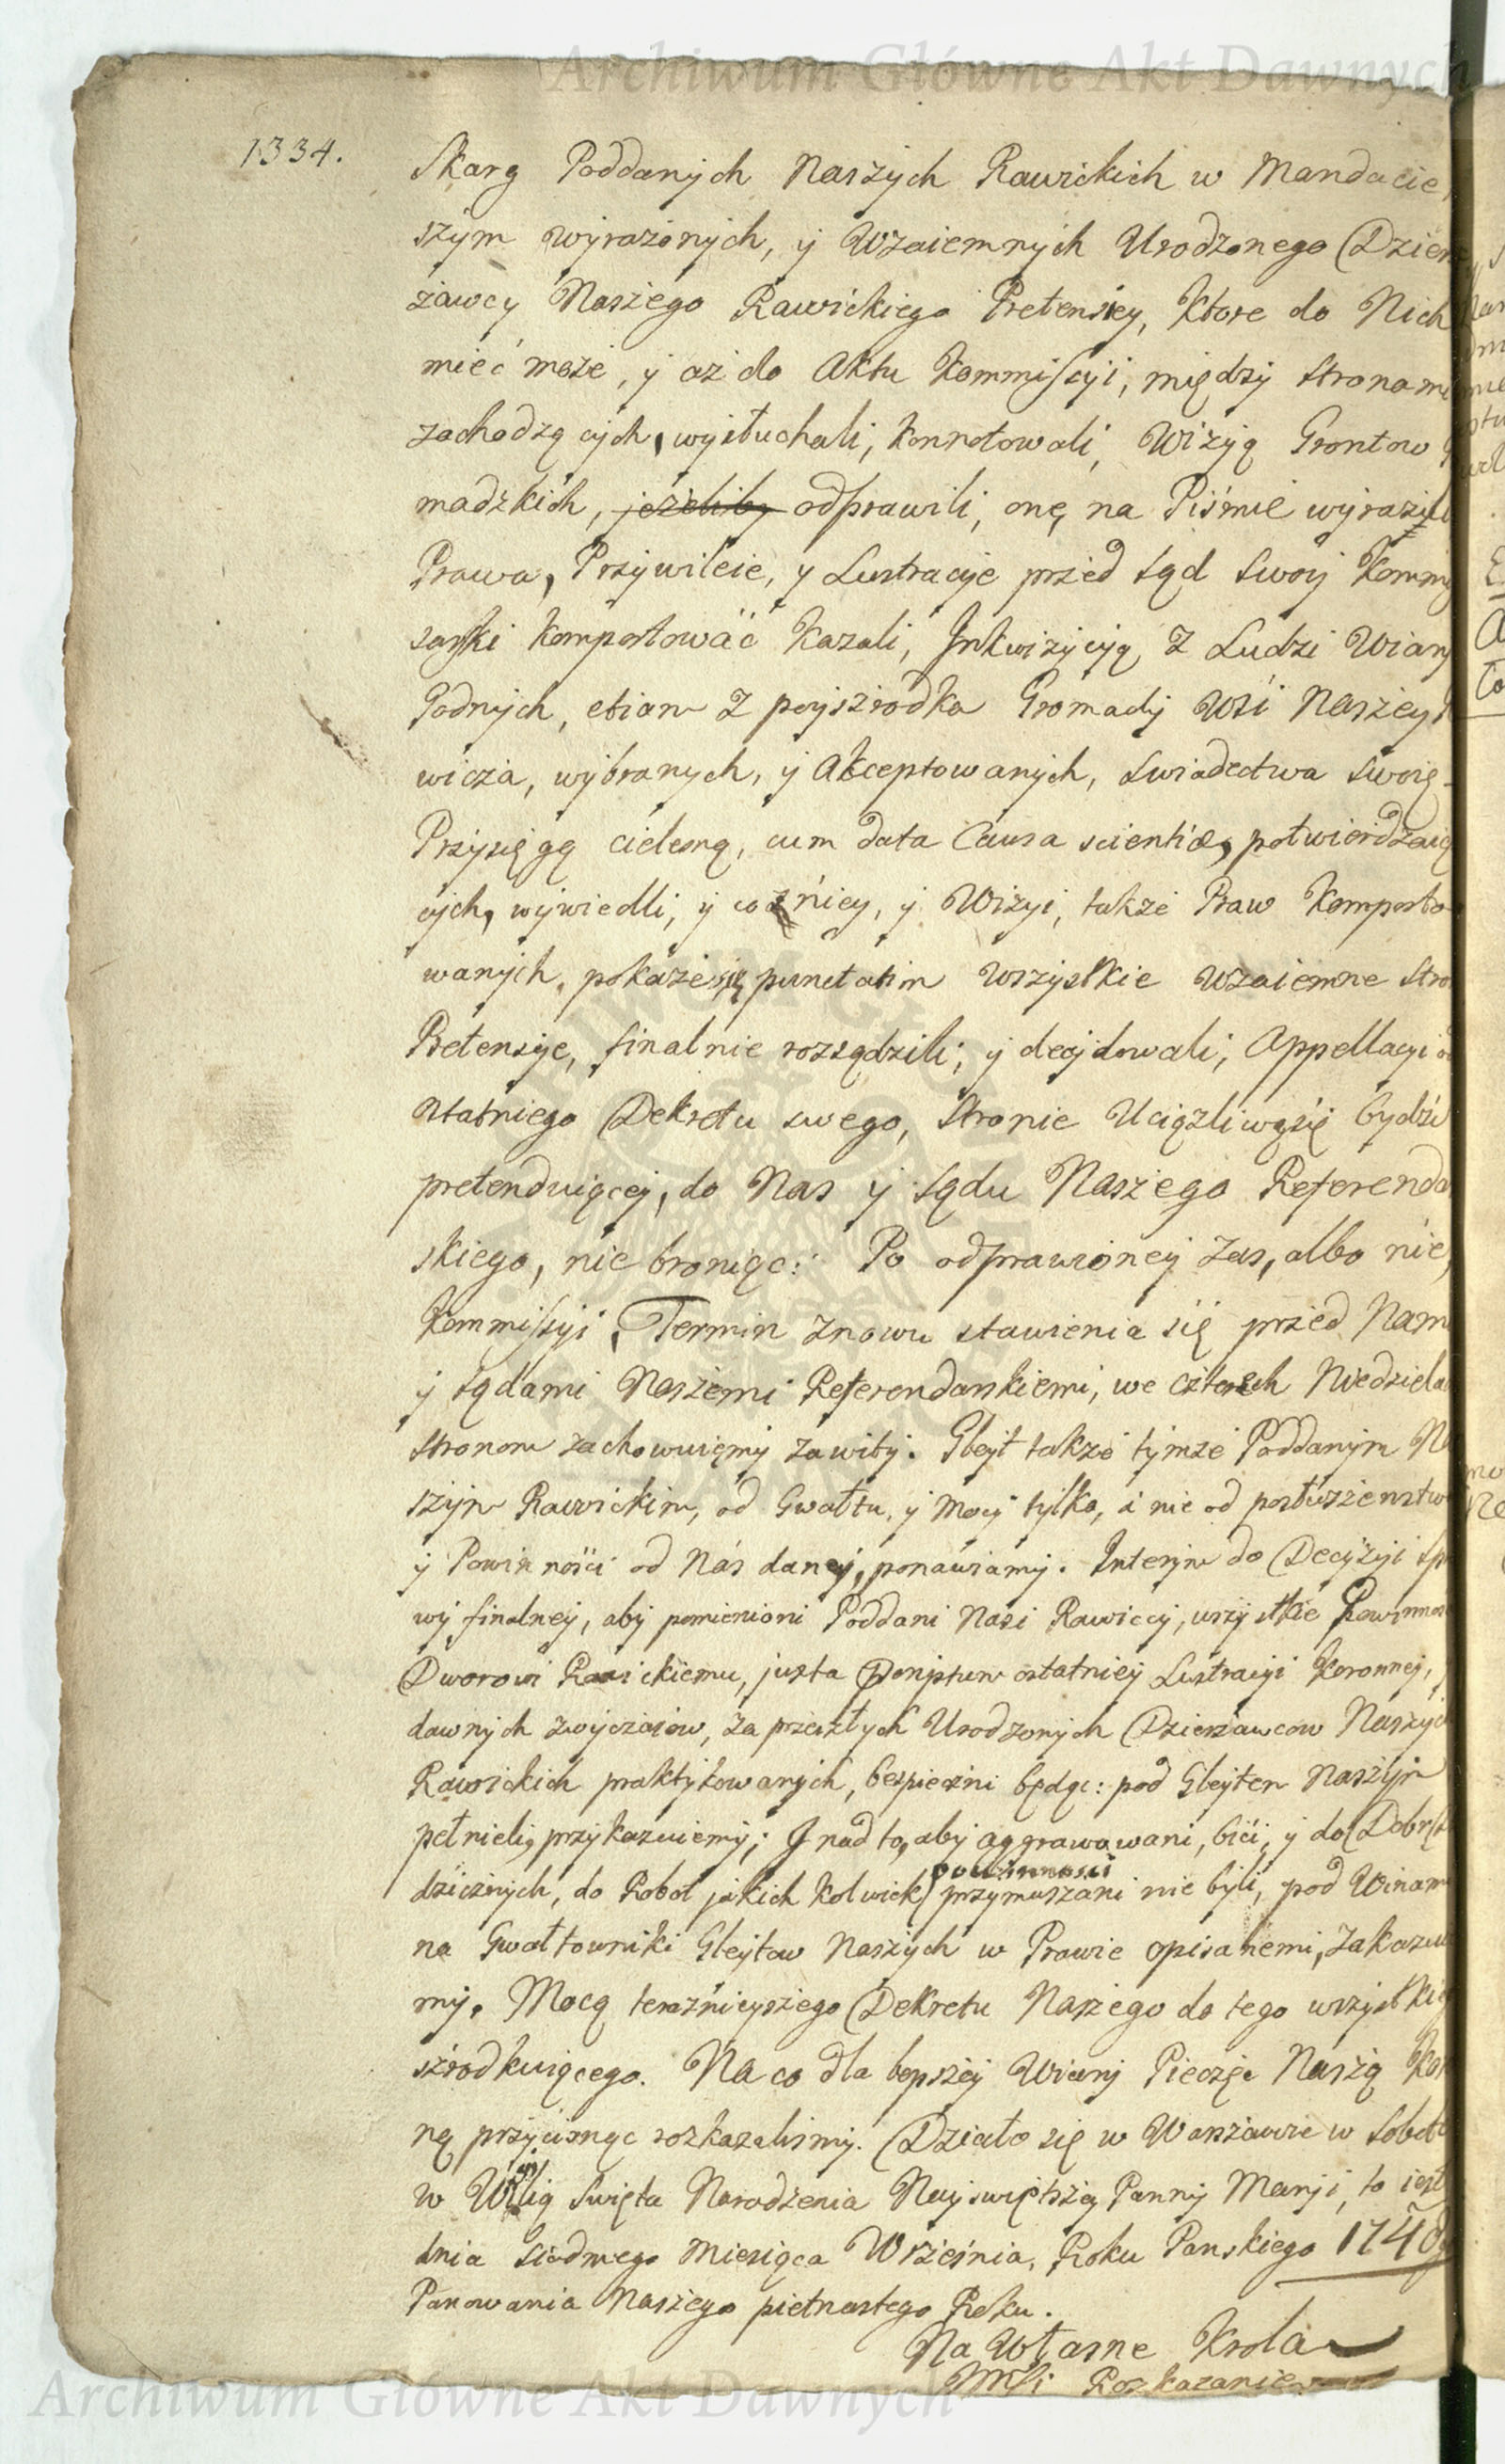 Archiwum Główne Akt Dawnych
1334.
Skarg Poddanych Naszych Rawickich w Mandacie
szym wyrażonych, y Wzaiemnych Urodzonego Dzier
żawcy Naszego Rawickiego Pretensiey, Ktore do Nich
mieć może, y aż do Aktu Kommissyi, między stronami
zachodzących, wysłuchali, konnotowali, Wizyą Grontow
madzkich, jeżeliby odprawili, onę na Piśmie wyrazili
Prawa, Przywileie, y Lustracye przed Sąd Swoy Kommis
sarski komportować kazali, Inkwizycyą z Ludzi Wiary
Godnych, etiam z poyszrodka Gromady Wsi Naszey
wicza, wybranych, y Akceptowanych, Swiadectwa swoie
Przysięgą cielesną, cum data Causa scientiæ, potwierdzaią
cych, wywiedli, y z niey, y Wizyi, także Praw Komporto
wanych, pokaże się, punctatim Wszystkie Wzaiemne Stro
Pretensye, finalnie rozsądzili, y decydowali, Appellacyi o
statniego Dekretu swego, Stronie Uciążliwąsię bydź
pretenduiącey, do Nas y Sądu Naszego Referenda
skiego, nie broniąc: Po odprawioney zas, albo nie,
Kommissyi, Termin znowu stawienia się przed Nami
y Sądami Naszemi Referendarskiemi, we czterech Niedziela
stronom zachowuiemy zawity. Gleyt także tymże Poddanym Na
szym Rawickim, od Gwałtu, y Mocy tylko, a nie od posłuszenstwa
y Powinności od Nas dany, ponawiamy. Interym do Decyzyi Sp
wy finalney, aby pomienioni Poddani Nasi Rawiccy, wszystkie Powinnos
Dworowi Rawickiemu, juxta Præscriptum ostatniey Lustracyi Koronney,
dawnych zwyczaiow, za przeszłych Urodzonych Dzierżawcow Naszych
Rawickich praktykowanych, bespieczni będąc: pod Gleytem Naszym
pełnieli, przykazuiemy; I nad to, aby aggrawowani, bići, y do Dobr
dzicznych, do Robot jakich kolwiek powinności przymuszani nie byli, pod Winami
na Gwałtowniki Gleytow Naszych w Prawie opisanemi, Zakazuie
my. Mocą teraźnieyszego Dekretu Naszego do tego wszystkie
szrodkuiącego. Na co dla lepszey Wiary Pieczęć Naszą Kor
ną przycisnąc rozkazaliśmy. Działo się w Warszawie w Sobotę
w Wigilią Swięta Narodzenia Nayswiętszey Panny Maryi, to iest
dnia siodmego Miesiąca Wrzesnia, Roku Panskiego 1748
Panowania Naszego pietnastego Roku.
Na Własne Krola
JMśći Rozkazanie
Archiwum Główne Akt Dawnych